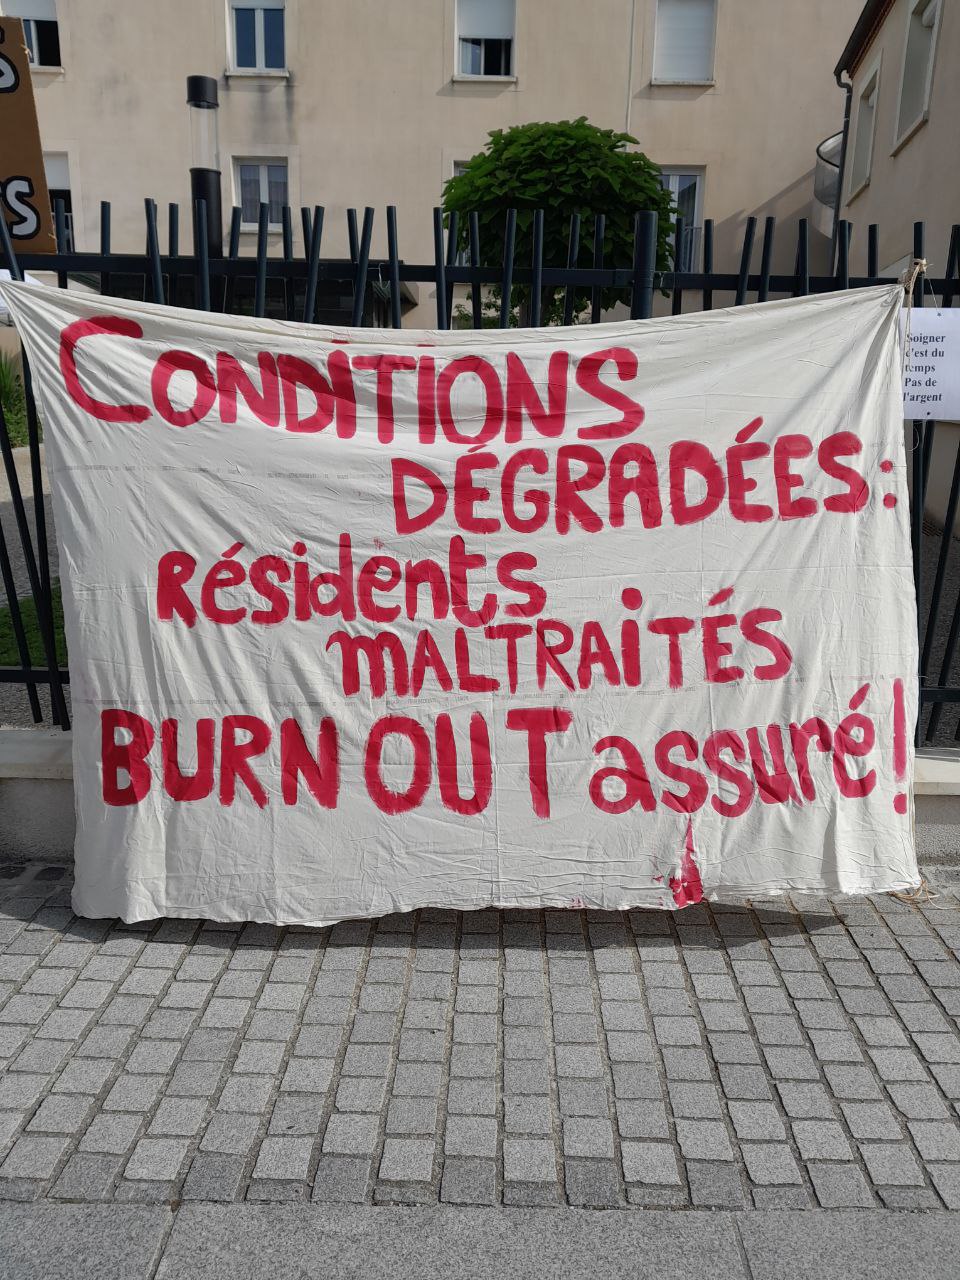 CONDITIONS
DÉGRADÉES:
Résidents
MALTRAITÉS
BURN OUT assuré!
Soigner
c'est du
temps
Pas de
l'argent
S
TS